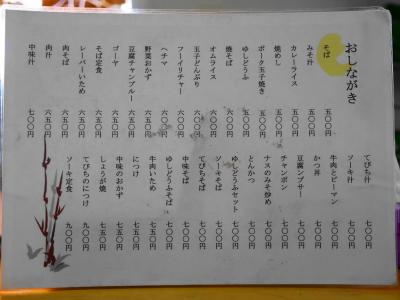 おしながき
そば 五〇〇円
みそ汁 五〇〇円
カレーライス 五〇〇円
焼めし 五〇〇円
ポーク玉子焼き 五〇〇円
ゆしどうふ 五〇〇円
焼そば 六〇〇円
オムライス 六〇〇円
玉子どんぶり 六〇〇円
フーイリチャー 六〇〇円
ヘチマ 六〇〇円
野菜おかず 六五〇円
豆腐チャンプルー 六五〇円
ゴーヤ 六五〇円
そば定食 六五〇円
レーバーいため 六五〇円
肉そば 六五〇円
肉汁 六五〇円
中味汁 七〇〇円
てびち汁 七〇〇円
ソーキ汁 七〇〇円
牛肉とピーマン 七〇〇円
かつ丼 七〇〇円
豆腐ンブサー 七〇〇円
チャンポン 七〇〇円
ナスのみそ炒め 七〇〇円
とんかつ 七〇〇円
ゆしどうふセット 七〇〇円
ソーキそば 七〇〇円
てびちそば 七〇〇円
中味そば 七〇〇円
ゆしどうふそば 七〇〇円
牛肉いため 七五〇円
につけ 七五〇円
中味のおかず 七五〇円
しょうが焼 七五〇円
てびちのにつけ 九〇〇円
ソーキ定食 九〇〇円